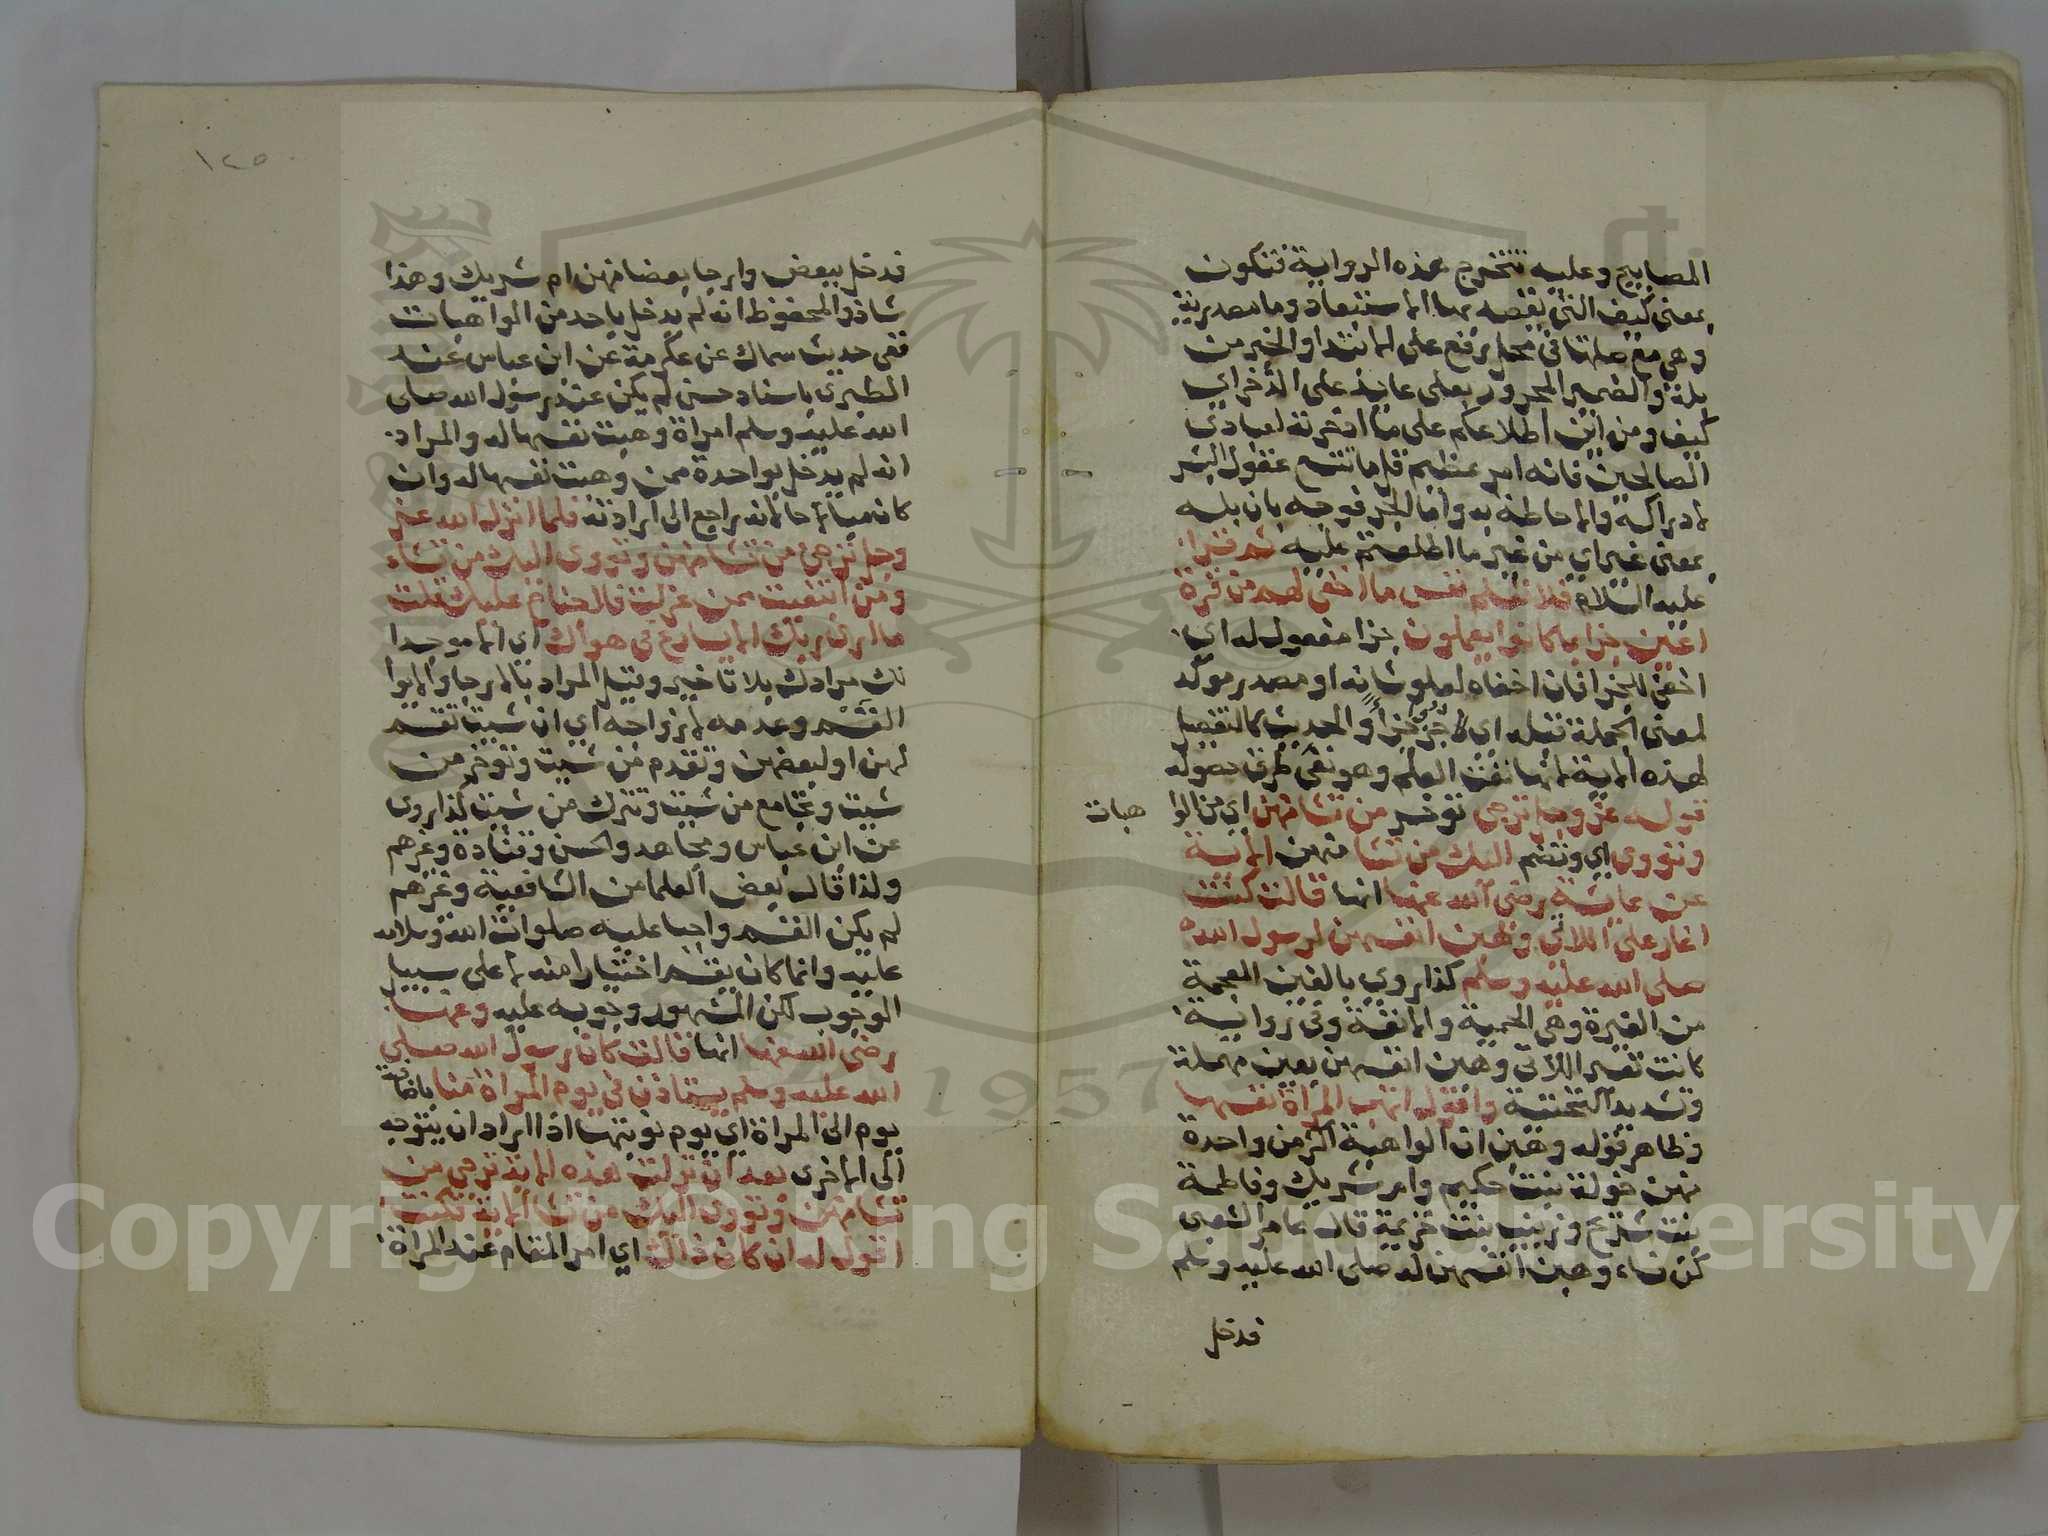 المصابيح وعليه تتخرج هذه الرواية فتكون
بمعنى كيف التي يقصد بها الاستبعاد وما مصدرية
وهي مع صلتها في محل رفع على الابتدا والخبر من
بله والضمير المجرور بعلى عايد على الذخر اي
كيف ومن اين اطلاعكم على ما ادخرته لعبادي
الصالحين فانه امر عظيم قلما تتسع عقول البشر
لادراكه والاحاطة به واما الجر فوجه بان بله
بمعنى غير اي من غير ما اطلعتم عليه ثم قرا
عليه السلام فلا تعلم نفس ما اخفي لهم من قرة
اعين جزا بما كانوا يعملون جزا مفعول له اي
اخفي للجزا فان اخفاه لعلو شانه او مصدر موكد
لمعنى الجملة قبله اي جزوا جزاء والحديث كالتفصيل
لهذه الاية لانها نفت العلم وهو نفى طرق حصوله
قوله عز وجل ترجى توخر من تشا منهن اي من الوا
هبات
وتووى اي وتضم اليك من تشا منهن الاية
عن عايشة رضى الله عنها انها قالت كنت
اغار على اللاتى وهبن انفسهن لرسول الله
صلى الله عليه وسلم كذا روي بالغين المعجمة
من الغيرة وهي الحمية والانفة وفي رواية
كانت تعير اللاتى وهبن انفسهن بعين مهملة
وتشديد التحتية واقول اتهب المراة نفسها
وظاهر قوله وهبن ان الواهبة اكثر من واحدة
منهن خولة بنت حكيم وام شريك وفاطمة
بنت شريح وزينب بنت خزيمة قال عامر الشعبى
كن نساء وهبن انفسهن له صلى الله عليه وسلم
فدخل
١٢٥
فدخل ببعض وارجا بعضا منهن ام شريك وهذا
شاذ والمحفوظ انه لم يدخل باحد من الواهبات
ففى حديث سماك عن عكرمة عن ابن عباس عند
الطبرى باسناد حسن لم يكن عند رسول الله صلى
الله عليه وسلم امراة وهبت نفسها له والمراد
انه لم يدخل بواحدة ممن وهبت نفسها له وان
كان مباحا لانه راجع الى ارادته فلما انزل الله عز
وجل ترجئ من تشا منهن وتووى اليك من تشاء
ومن ابتغيت ممن عزلت فلا جناح عليك قلت
ما ارى ربك الا يسارع فى هواك اي الا موجدا
لك مرادك بلا تاخير وقيل المراد بالارجا والايوا
القسم وعدمه لازواجه اي ان شيت تقسم
لهن او لبعضهن وتقدم من شيت وتوخر من
شيت وتجامع من شيت وتترك من شيت كذا روى
عن ابن عباس ومجاهد والحسن وقتادة وغيرهم
ولذا قال بعض العلما من الشافعية وغيرهم
لم يكن القسم واجبا عليه صلوات الله وسلامه
عليه وانما كان يقسم اختيارا منه لا على سبيل
الوجوب لكن المشهور وجوبه عليه وعنها
رضى الله عنها انها قالت كان رسول الله صلى
الله عليه وسلم يستاذن في يوم المراة منا باضافة
يوم الى المراة اي يوم نوبتها اذا اراد ان يتوجه
الى الاخرى بعد ان نزلت هذه الاية ترجى من
تشا منهن وتووى اليك من تشا الاية فكنت
اقول له ان كان ذاك اي امر المقام عند المراة